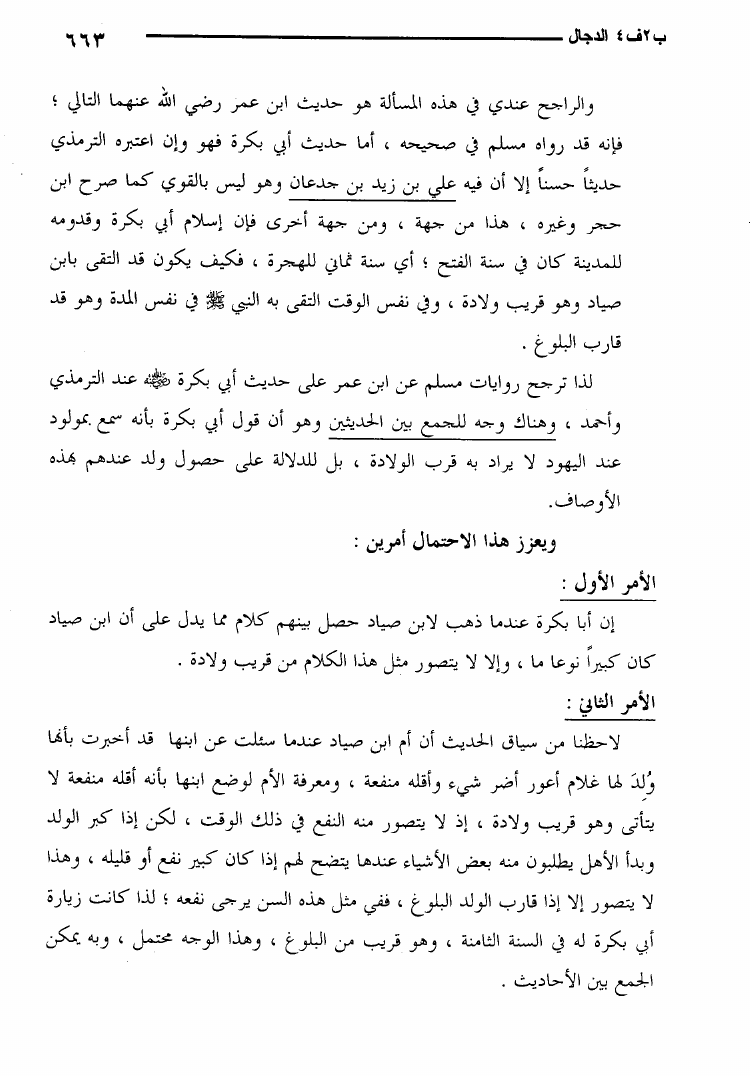 ب٢ف٤ الدجال ٦٦٣
والراجح عندي في هذه المسألة هو حديث ابن عمر رضي الله عنهما التالي ؛
فإنه قد رواه مسلم في صحيحه ، أما حديث أبي بكرة فهو وإن اعتبره الترمذي
حديثاً حسناً إلا أن فيه علي بن زيد بن جدعان وهو ليس بالقوي كما صرح ابن
حجر وغيره ، هذا من جهة ، ومن جهة أخرى فإن إسلام أبي بكرة وقدومه
للمدينة كان في سنة الفتح ؛ أي سنة ثماني للهجرة ، فكيف يكون قد التقى بابن
صياد وهو قريب ولادة ، وفي نفس الوقت التقى به النبي ﷺ في نفس المدة وهو قد
قارب البلوغ .
لذا ترجح روايات مسلم عن ابن عمر على حديث أبي بكرة رضي الله عنه عند الترمذي
وأحمد ، وهناك وجه للجمع بين الحديثين وهو أن قول أبي بكرة بأنه سمع بمولود
عند اليهود لا يراد به قرب الولادة ، بل للدلالة على حصول ولد عندهم بهذه
الأوصاف.
ويعزز هذا الاحتمال أمرين :
الأمر الأول :
إن أبا بكرة عندما ذهب لابن صياد حصل بينهم كلام مما يدل على أن ابن صياد
كان كبيراً نوعا ما ، وإلا لا يتصور مثل هذا الكلام من قريب ولادة .
الأمر الثاني :
لاحظنا من سياق الحديث أن أم ابن صياد عندما سئلت عن ابنها قد أخبرت بأنها
وُلِدَ لها غلام أعور أضر شيء وأقله منفعة ، ومعرفة الأم لوضع ابنها بأنه أقله منفعة لا
يتأتى وهو قريب ولادة ، إذ لا يتصور منه النفع في ذلك الوقت ، لكن إذا كبر الولد
وبدأ الأهل يطلبون منه بعض الأشياء عندها يتضح لهم إذا كان كبير نفع أو قليله ، وهذا
لا يتصور إلا إذا قارب الولد البلوغ ، ففي مثل هذه السن يرجى نفعه ؛ لذا كانت زيارة
أبي بكرة له في السنة الثامنة ، وهو قريب من البلوغ ، وهذا الوجه محتمل ، وبه يمكن
الجمع بين الأحاديث .